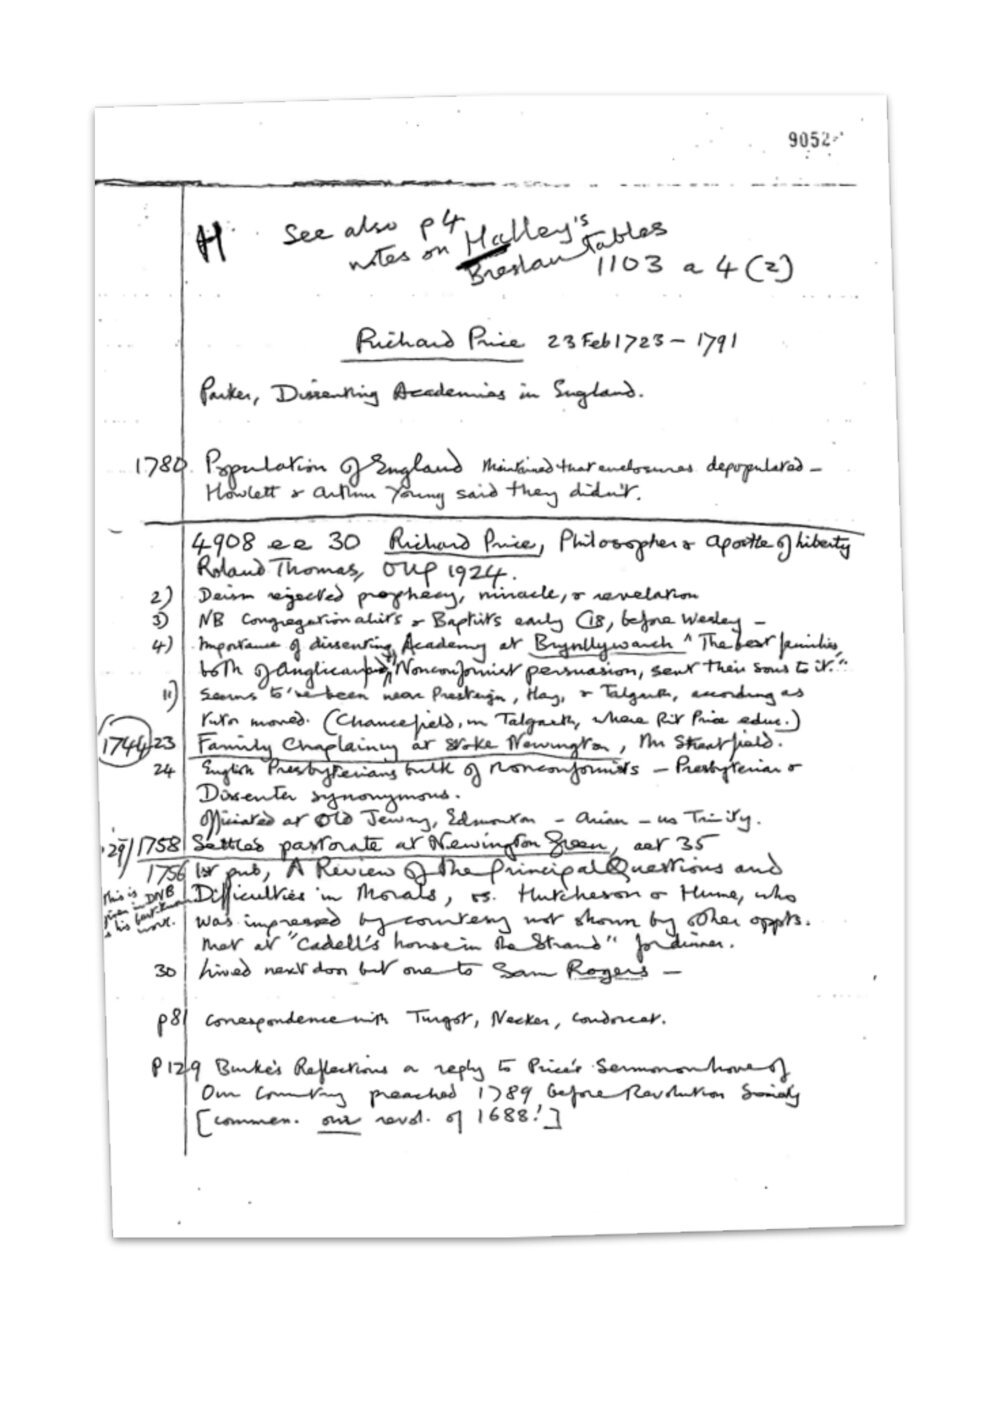 9052
H See also p4
notes on Halley's
Breslau Tables
1103 a 4 (2)
Richard Price 23 Feb 1723 – 1791
Parker, Dissenting Academies in England.
1780 Population of England Maintained that enclosures depopulated –
Howlett & Arthur Young said they didn't.
4908 ee 30 Richard Price, Philosopher & Apostle of Liberty
Roland Thomas, OUP 1924.
2) Deism rejected prophecy, miracle, & revelation
3) NB Congregationalists & Baptists early C18, before Wesley –
4) Importance of dissenting Academy at Brynllywarch "The best families,
both of Anglican & Nonconformist persuasion, sent their sons to it."
11) Seems to've been near Presteign, Hay, & Talgarth, according as
tutor moved. (Chancefield, nr Talgarth, where Rit Price educ.)
1744 23 Family Chaplaincy at Stoke Newington, Mr Streatfield.
24 English Presbyterians bulk of nonconformists – Presbyterian &
Dissenter synonymous.
Officiated at Old Jewry, Edmonton – Arian – no Trinity.
29/1758 Settles pastorate at Newington Green, aet 35
1756 1st pub, A Review of the Principal Questions and
This is DNB
given in
& his best known
work.
Difficulties in Morals, vs. Hutcheson & Hume, who
was impressed by courtesy not shown by other oppts.
Met at "Cadell's house in the Strand" for dinner.
30 Lived next door but one to Sam Rogers –
p81 Correspondence with Turgot, Necker, Condorcet.
P129 Burke's Reflections a reply to Price's Sermon on Love of
Our Country preached 1789 before Revolution Society
[commem. our revol. of 1688!]